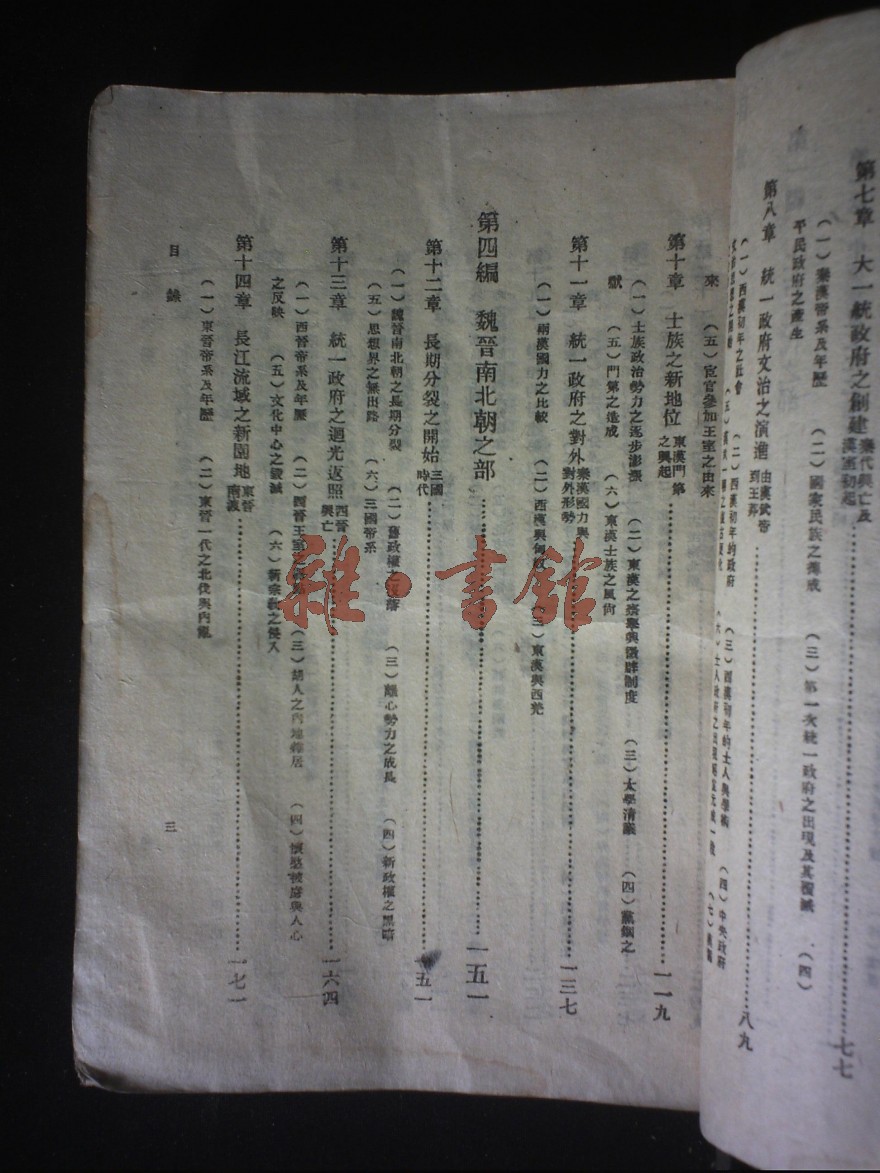 第七章　大一統政府之創建 秦代興亡及漢室初起……七七
（一）秦漢帝系及年歷　（二）國家民族之摶成　（三）第一次統一政府之出現及其覆滅　（四）
平民政府之產生
第八章　統一政府文治之演進 由漢武帝到王莽……八九
（一）西漢初年之社會　（二）西漢初年的政府　（三）西漢初年的士人與學術　（四）中央政府
來　（五）宦官參加王室之由來
第十章　士族之新地位 東漢門第之興起……一一九
（一）士族政治勢力之逐步膨漲　（二）東漢之察舉與徵辟制度　（三）太學清議　（四）黨錮之
獄　（五）門第之造成　（六）東漢士族之風尚
第十一章　統一政府之對外 秦漢國力與對外形勢……一三七
（一）兩漢國力之比較　（二）西漢與匈奴　（三）東漢與西羌
第四編　魏晉南北朝之部……一五一
第十二章　長期分裂之開始 三國時代……一五一
（一）魏晉南北朝之長期分裂　（二）舊政權之　（三）離心勢力之成長　（四）新政權之黑暗
（五）思想界之無出路　（六）三國帝系
第十三章　統一政府之迴光返照 西晉興亡……一六四
（一）西晉帝系及年歷　（二）西晉王室之　（三）胡人之內地雜居　（四）懷愍被虜與人心
之反映　（五）文化中心之毀滅　（六）新宗教之侵入
第十四章　長江流域之新園地 東晉南渡……一七一
（一）東晉帝系及年歷　（二）東晉一代之北伐與內亂
目錄
三
雜·書館